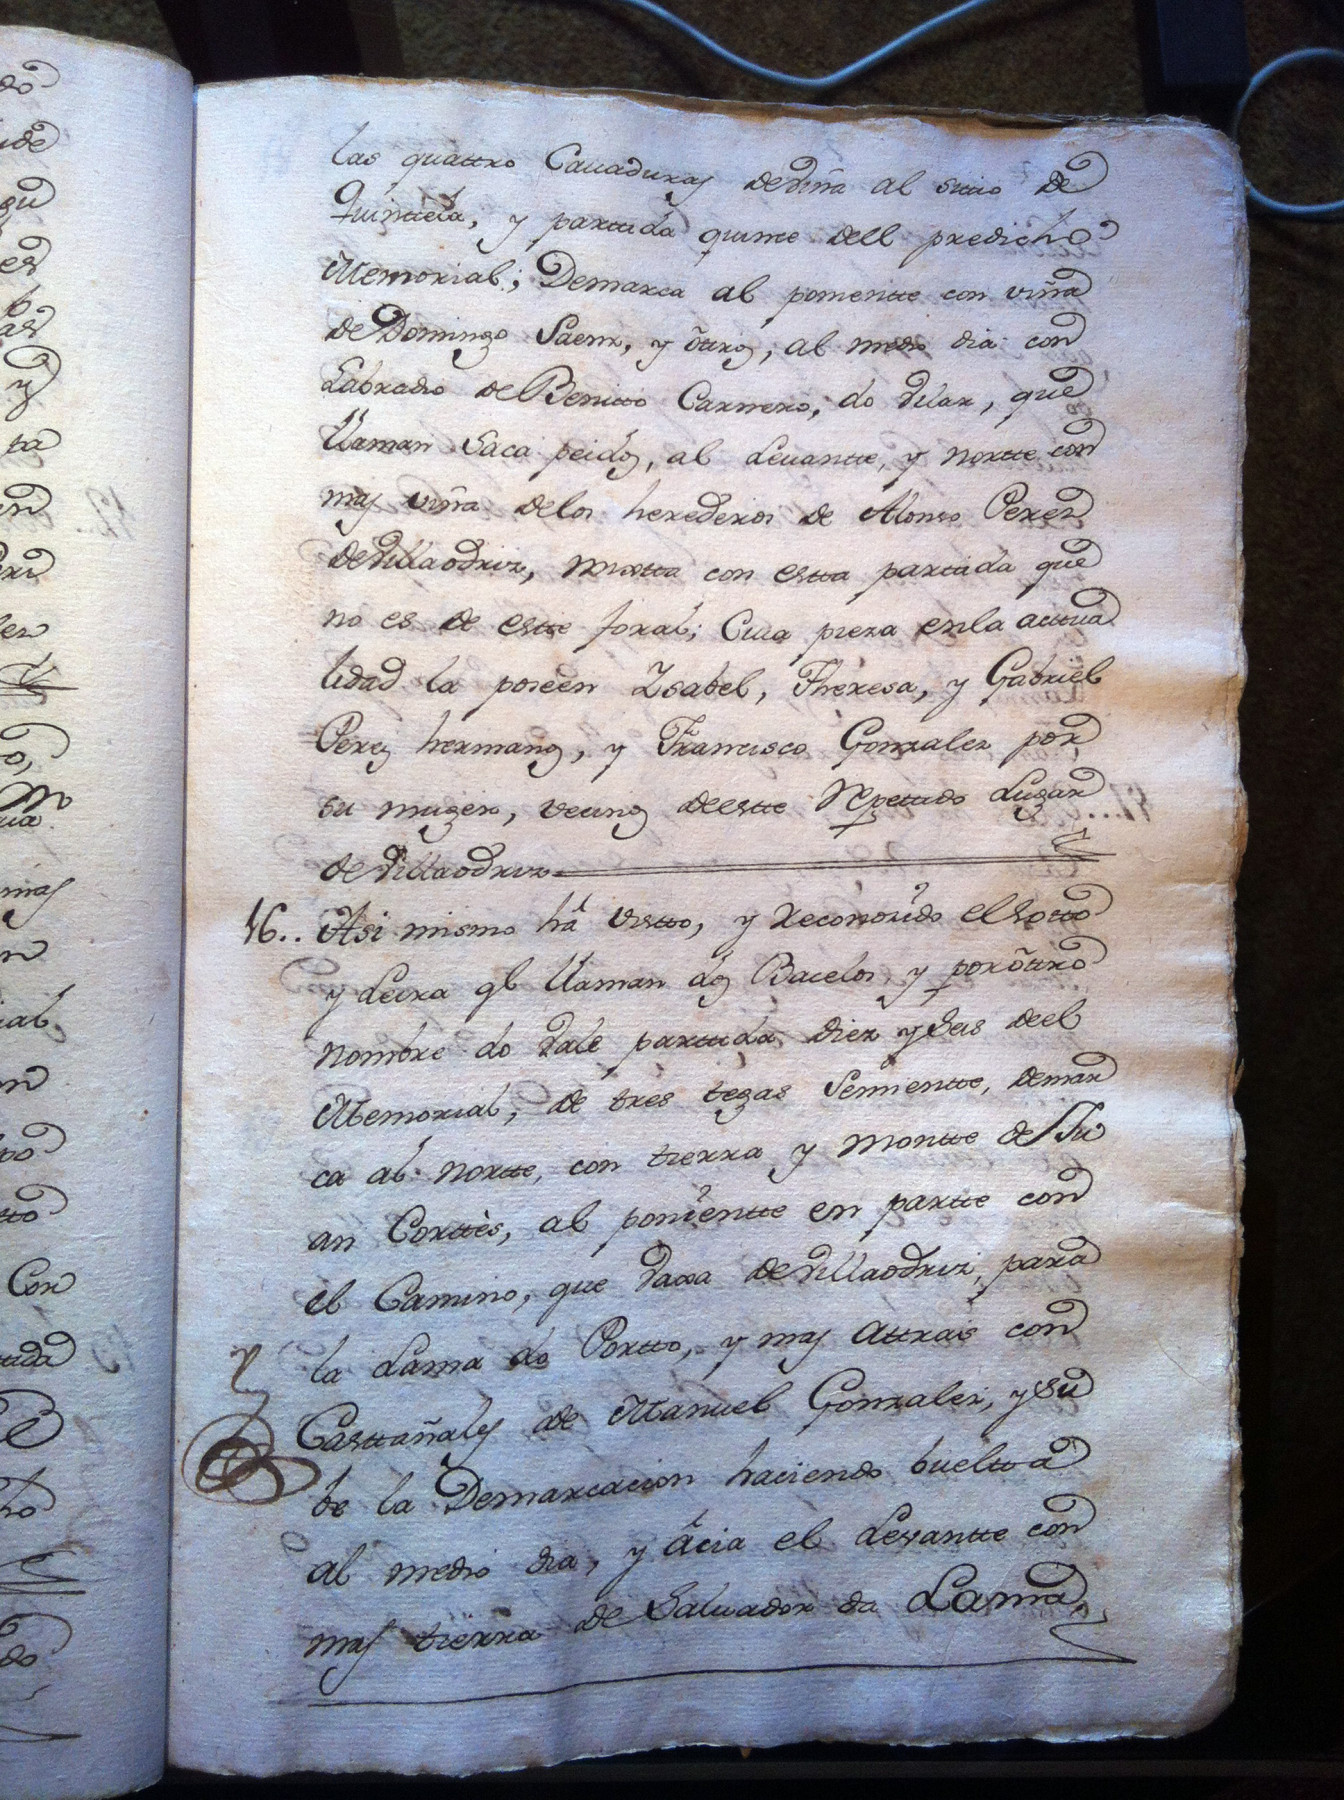 las quattro Cauaduras de viña al sittio de
Quinttela, y parttida quince dell predicho
Memorial; Demarca al ponientte con viña
de Domingo Saenz, y ôttros, al medio dia con
Labradio de Benitto Carnero, do Vilar, que
llaman Saca peidos, al Leuantte, y nortte con
mas viña delos herederos de Alonso Perez
de Villaodriz, mixtta con estta parttida que
no es de estte foral; Cuia pieza enla acttua
lidad la poseen Ysabel, Theresa, y Gabriel
Perez hermanos, y Francisco Gonzalez por
su muger, vecinos deestte Repetido Lugar
de Villaodriz
16.. Asi mismo há visto, y Reconosido el sotto
y Leira ql llaman dos Bacelos y por ôttro
nombre do Vale parttida diez y seis deel
Memorial, de tres tegas Semientte, demar
ca al nortte, con tierra y montte de Ju
an Corttès, al ponientte en partte con
el Camino, que vaxa de Villaodriz, para
la Lama do Portto, y mas attrás con
Casttañales de Manuel Gonzalez, y su
be la Demarcacion haciendo buelta
al medio dia, y ácia el Levantte con
mas tierra de Saluador da Lama,